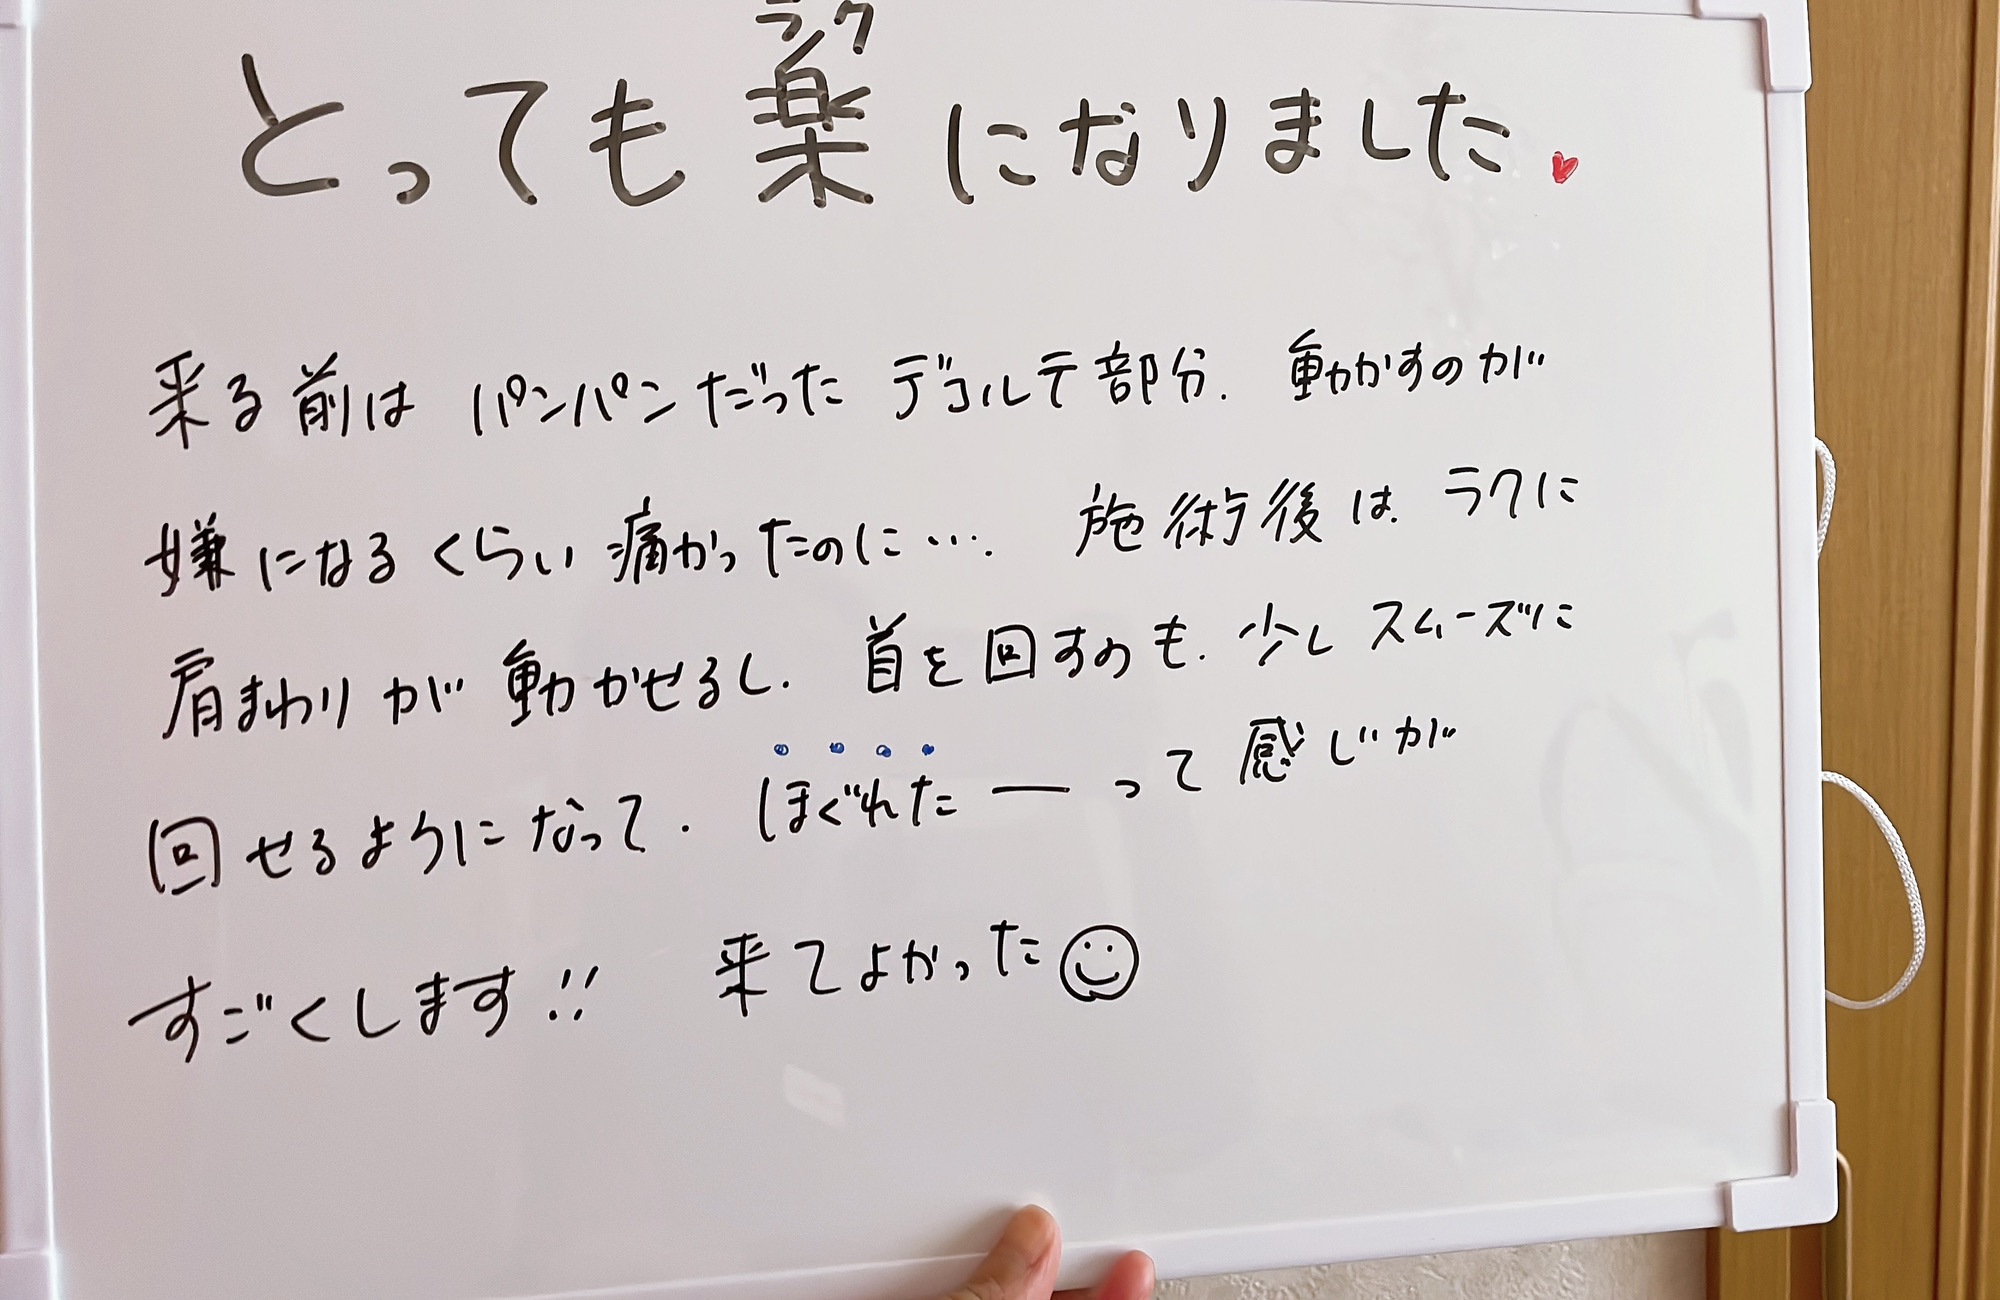 ラク
とっても楽になりました♥
来る前はパンパンだったデコルテ部分、動かすのが
嫌になるくらい痛かったのに…。施術後はラクに
肩まわりが動かせるし、首を回すのも、少しスムーズに
回せるようになって、ほぐれたーって感じが
すごくします!! 来てよかった☺